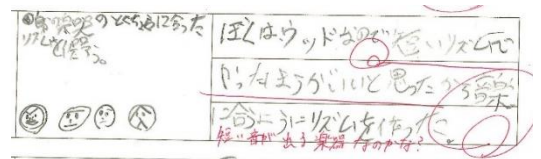 ●音楽記号のとくちょうに合った
リズムを作ろう。
ぼくはウッドなので短いリズムで
やったほうがいいと思ったから音楽
に合うようにリズムを作った。
短い音が出る楽器なのかな？